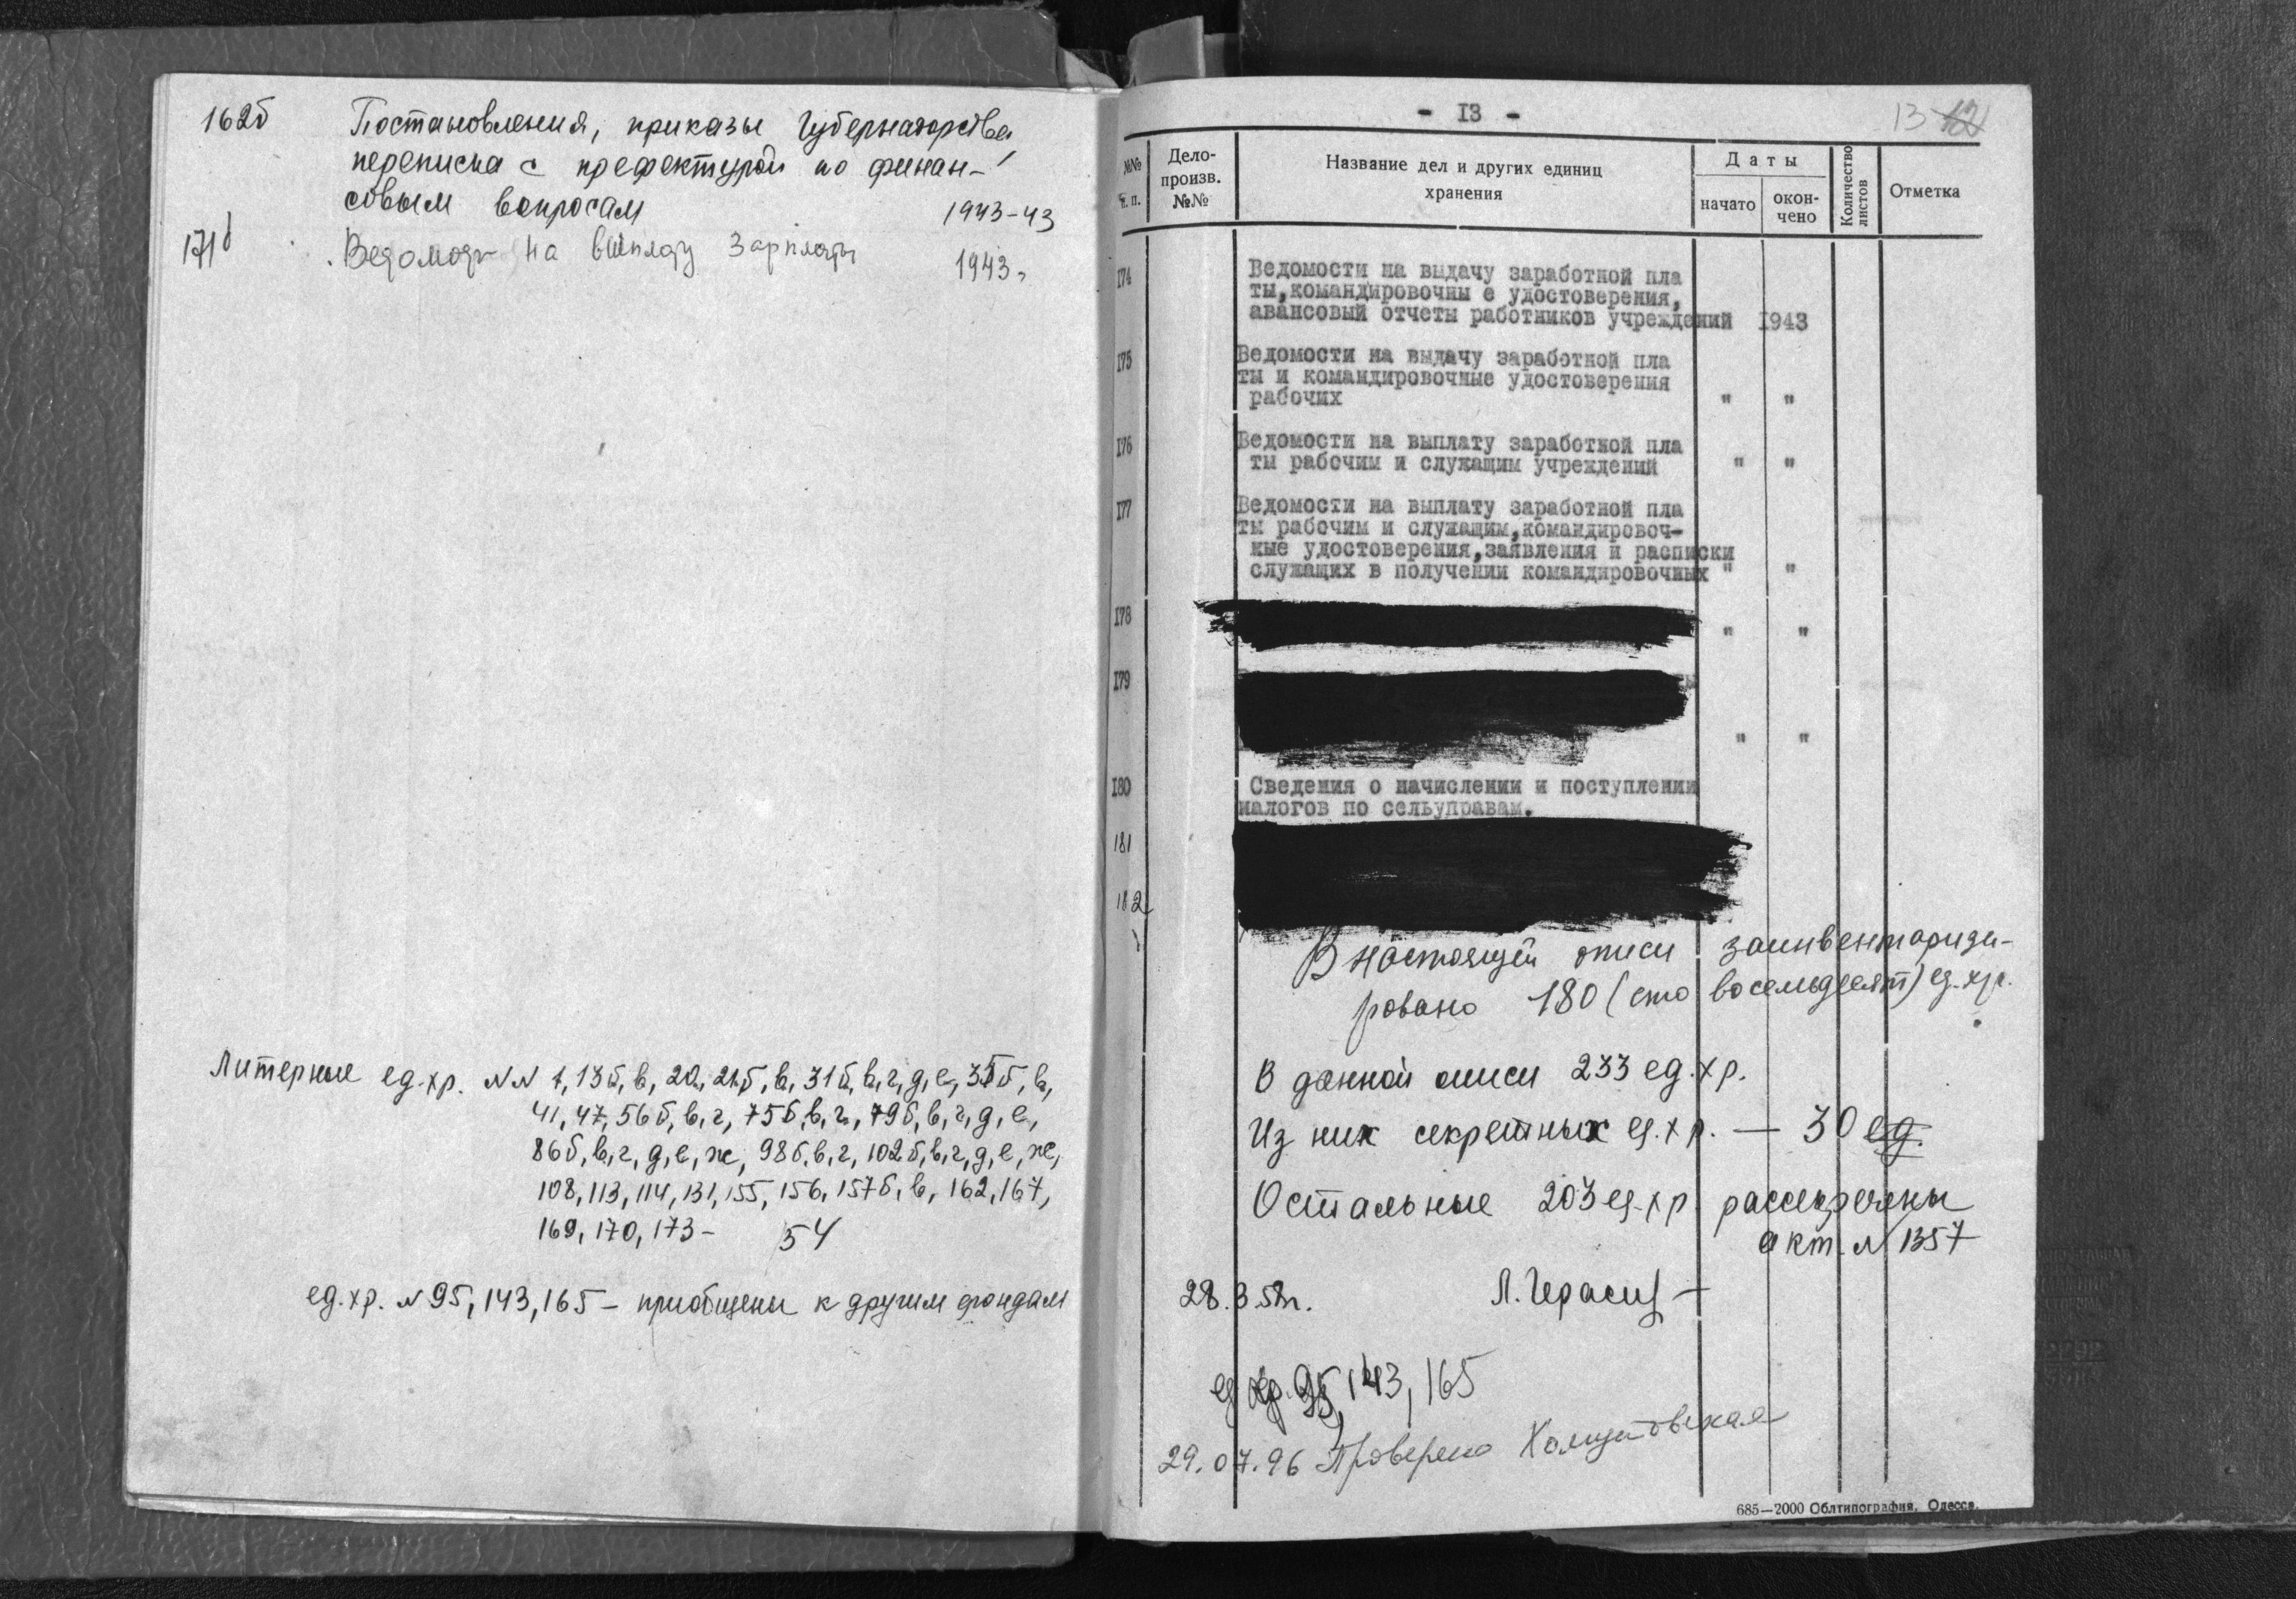 162б Постановления, приказы Губернаторства,
переписка с префектурой по финан-
совым вопросам 1943-43
171б Ведомость на выплату зарплаты 1943г
Литерные ед.хр. NN 7, 13б, в, 20, 21б, в, 31б, в, г, д, е, 35б, в,
41, 47, 56б, в, г, 75б, в, г, 79б, в, г, д, е,
86б, в, г, д, е, ж, 98б, в, г, 102б, в, г, д, е, ж,
108, 113, 114, 131, 155, 156, 157б, в, 162, 167,
169, 170, 173 - 54
ед.хр. N 95, 143, 165 - приобщены к другим фондам
- I3 -
13 12
№№ п. п.
Дело-
произв.
№№
Название дел и других единиц
хранения
Даты
начато
окон-
чено
Количество
листов
Отметка
I74 Ведомости на выдачу заработной пла
ты,командировочны е удостоверения,
авансовый отчеты работников учреждений I943
I75 Ведомости на выдачу заработной пла
ты и командировочные удостоверения
рабочих " "
I76 Ведомости на выплату заработной пла
ты рабочим и служащим учреждений " "
I77 Ведомости на выплату заработной пла
ты рабочим и служащим,командировоч-
ные удостоверения,заявления и расписки
служащих в получении командировочных " "
I78 " "
I79
" "
I80 Сведения о начислении и поступлении
налогов по сельуправам.
181
182
В настоящей описи заинвентаризи-
ровано 180 (сто восемьдесят) ед.хр.
В данной описи 233 ед.хр.
Из них секретных ед.хр. — 30 ед.
Остальные 203 ед.хр. рассекречены
акт. N 1357
28.3.58г. Л.Герасим
ед.хр. 95, 143, 165
29.07.96 Проверено
685—2000 Облтипография, Одесса.